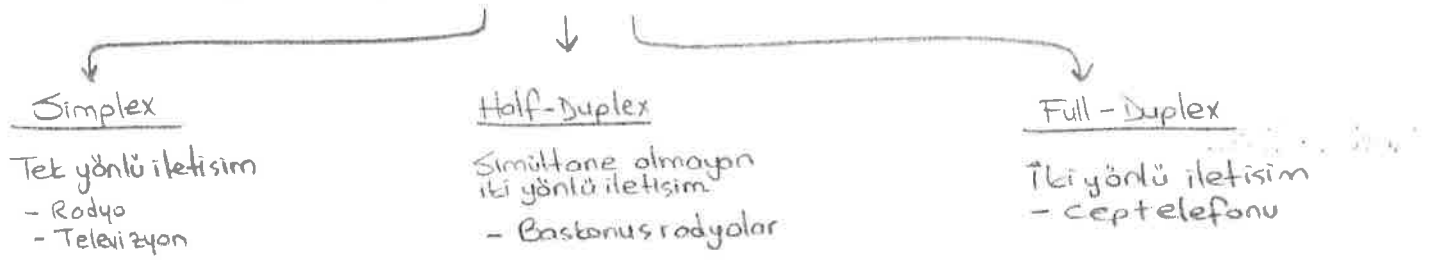 Simplex
Tek yönlü iletişim
- Radyo
- Televizyon
Half-Duplex
Simültane olmayan
iki yönlü iletişim
- Baskonus radyolar
Full-Duplex
İki yönlü iletişim
- cep telefonu